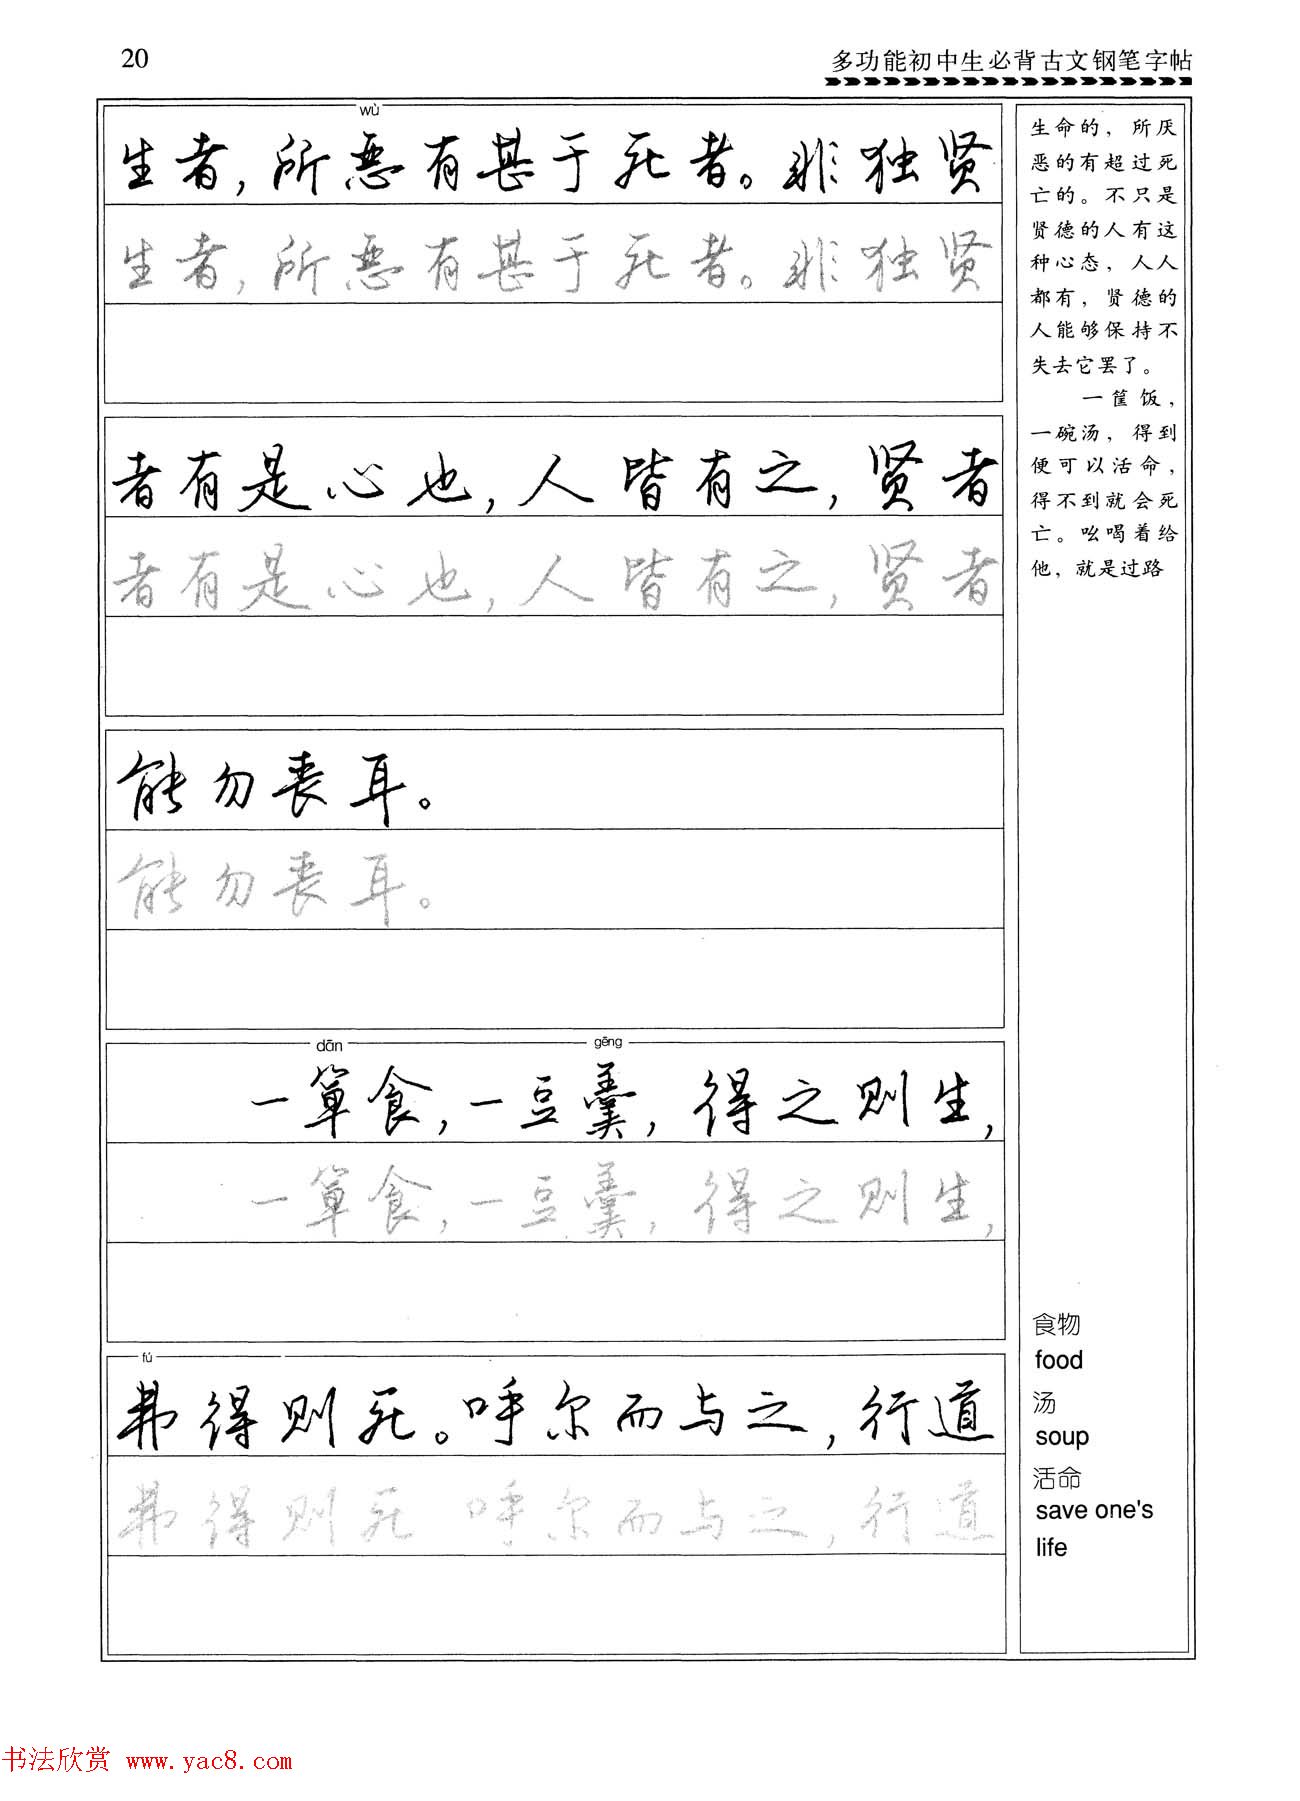 20
多功能初中生必背古文钢笔字帖
wù
生者，所恶有甚于死者。非独贤
生者，所恶有甚于死者。非独贤
者有是心也，人皆有之，贤者
者有是心也，人皆有之，贤者
能勿丧耳。
能勿丧耳。
dān gēng
一箪食，一豆羹，得之则生，
一箪食，一豆羹，得之则生，
fú
弗得则死。呼尔而与之，行道
弗得则死 呼尔而与之，行道
生命的，所厌
恶的有超过死
亡的。不只是
贤德的人有这
种心态，人人
都有，贤德的
人能够保持不
失去它罢了。
一筐饭，
一碗汤，得到
便可以活命，
得不到就会死
亡。吆喝着给
他，就是过路
食物
food
汤
soup
活命
save one's
life
书法欣赏 www.yac8.com